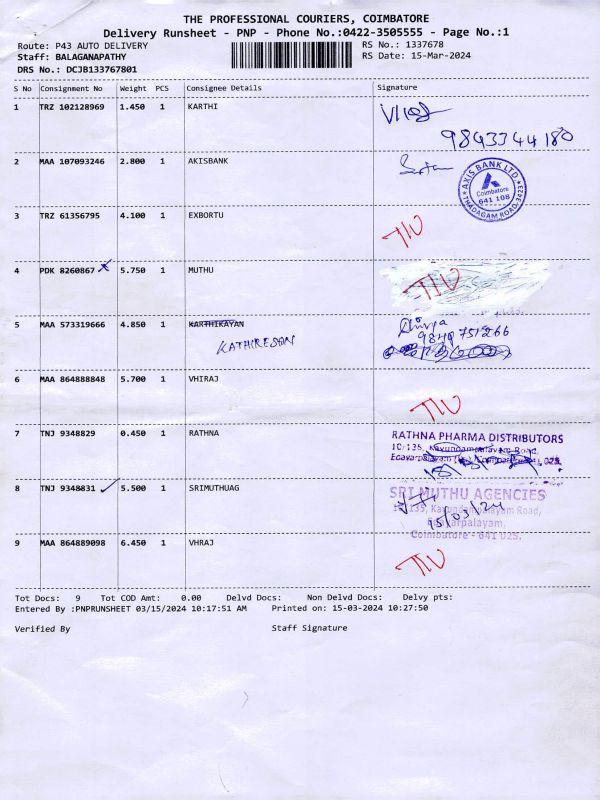 THE PROFESSIONAL COURIERS, COIMBATORE
Delivery Runsheet - PNP - Phone No.:0422-3505555 - Page No.:1
Route: P43 AUTO DELIVERY RS No.: 1337678
Staff: BALAGANAPATHY RS Date: 15-Mar-2024
DRS No.: DCJB133767801
S No Consignment No Weight PCS Consignee Details Signature
1 TRZ 102128969 1.450 1 KARTHI
9843344180
2 MAA 107093246 2.800 1 AKISBANK
AXIS BANK LTD.
Coimbatore
641 108
THADAGAM ROAD, 3423
3 TRZ 61356795 4.100 1 EXBORTU
TIU
4 PDK 8260867 5.750 1 MUTHU
TIU
5 MAA 573319666 4.850 1 KARTHIKAYAN
KATHIRESAN
Divya
9840751266
6 MAA 864888848 5.700 1 VHIRAJ
TIU
7 TNJ 9348829 0.450 1 RATHNA
RATHNA PHARMA DISTRIBUTORS
10/135, Kavundampalayam Road,
8 TNJ 9348831 5.500 1 SRIMUTHUAG
SRI MUTHU AGENCIES
10/135, Kavundampalayam Road,
15/03/24
Edayarpalayam,
Coimbatore - 641 025.
9 MAA 864889098 6.450 1 VHRAJ
TIU
Tot Docs: 9 Tot COD Amt: 0.00 Delvd Docs: Non Delvd Docs: Delvy pts:
Entered By :PNPRUNSHEET 03/15/2024 10:17:51 AM Printed on: 15-03-2024 10:27:50
Verified By Staff Signature